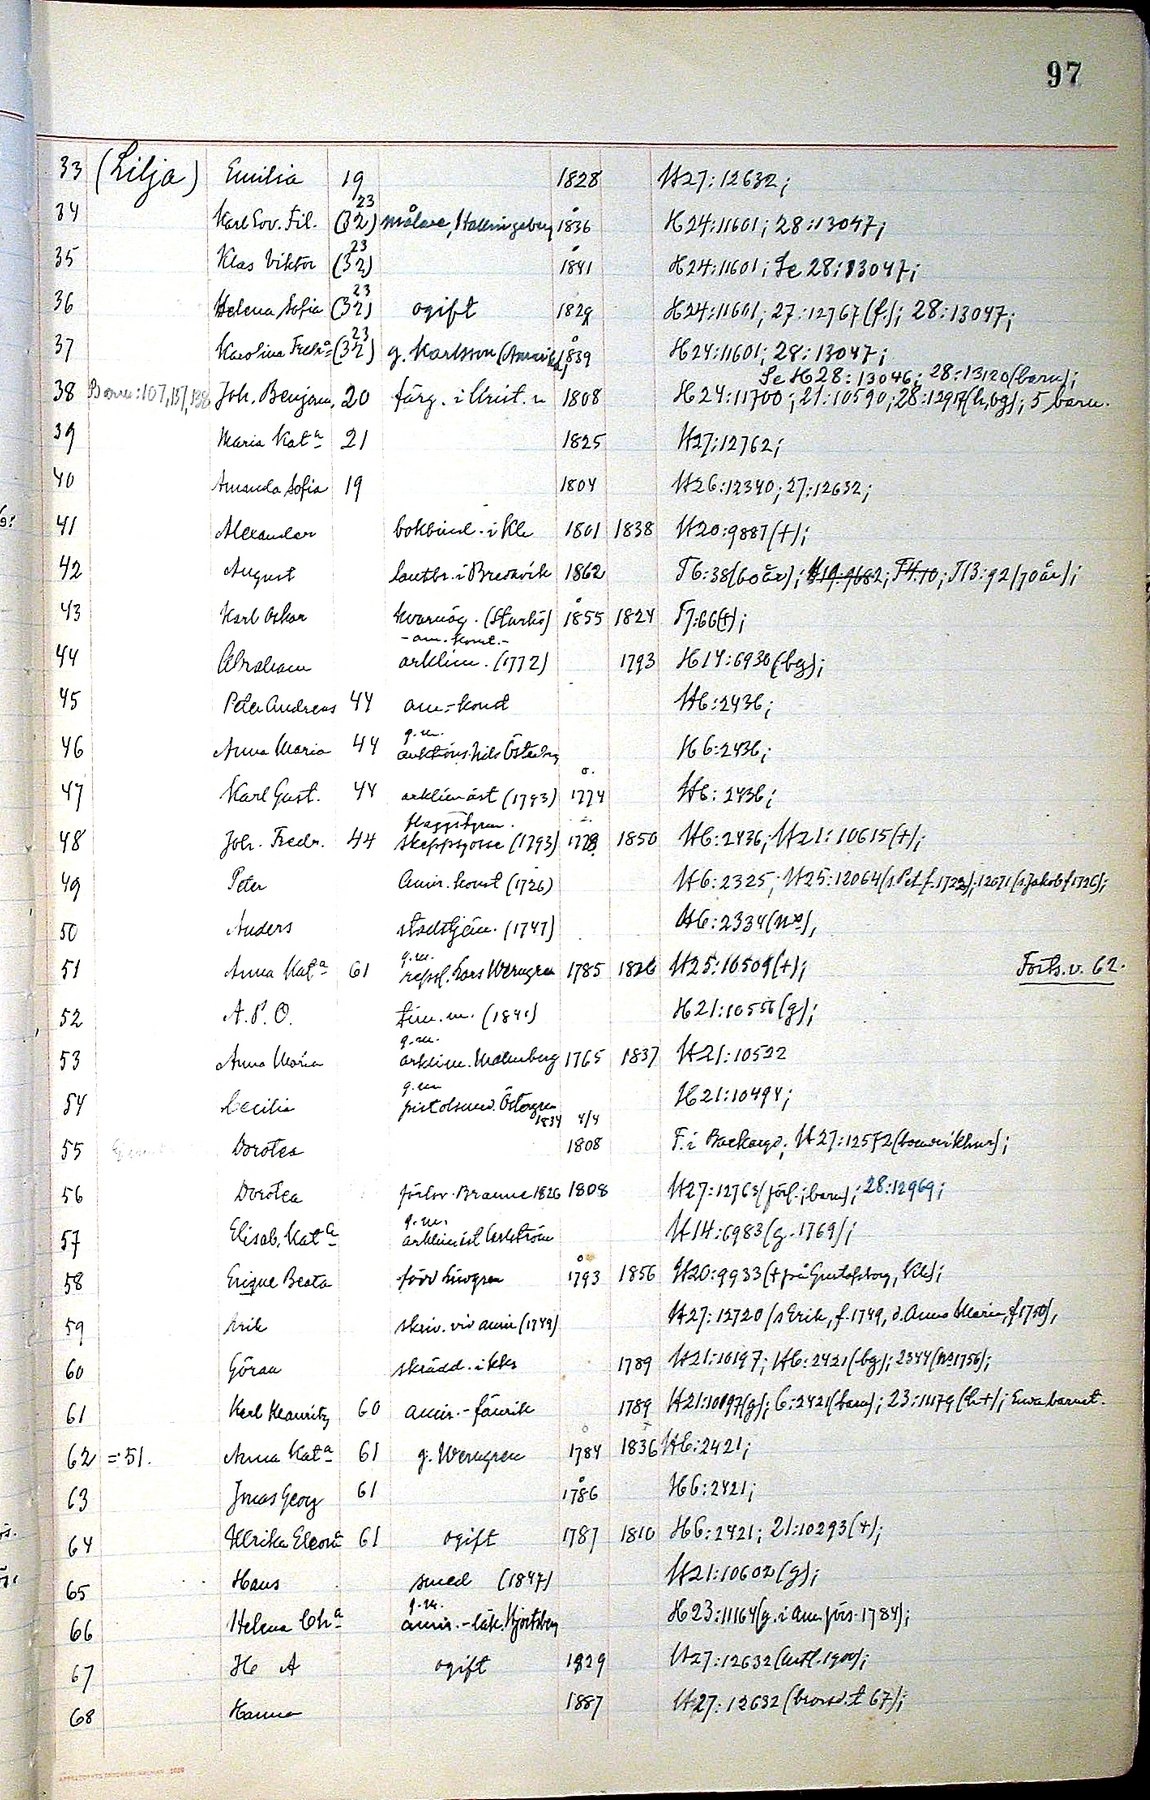 97
33 (Lilja) Emilia 19 1828 H27:12632;
34 Karl Lov. Fil. (32) 23 målare, Hallingeberg 1836 H24:11601; 28:13047;
35 Klas Viktor (32) 23 1841 H24:11601; Se 28:13047;
36 Helena Sofia (32) 23 ogift 1829 H24:11601; 27:12767(f.); 28:13047;
37 Karolina Fredr:a (32) 23 g. Karlsson (Amerika) 1839 H24:11601; 28:13047;
Se H28:13046; 28:13120(barn);
38 Barn:107,137,138 Joh. Benjam. 20 färg. i Krist. n 1808 H24:11700; 21:10590; 28:12917(h,bg); 5 barn.
39 Maria Kat:a 21 1825 H27:12762;
40 Amanda Sofia 19 1804 H26:12340; 27:12632;
41 Alexander bokbind. i Kla 1801 1838 H20:9887(+);
42 August lantbr. i Bredavik 1862 T6:38(60år); H19:9682; T4:10; T13:92(70år);
43 Karl Oskar kvarnäg. (Sturkö) 1855 1824 T7:66(+);
44 Abraham -am. konst.- arklim. (1772) 1793 H14:6930(bg);
45 Peter Andreas 44 am=konst H6:2436;
46 Anna Maria 44 g.m. Nils Österberg H6:2436;
47 Karl Gust. 44 arklimäst (1793) 1774 H6:2436;
48 Joh. Fredr. 44 skeppsgosse (1793) 1778 1850 H6:2436; H21:10615(+);
49 Peter Amir. konst (1726) H6:2325; H25:12064(s. Pet f.1722); 12071(s Jakob f 1726);
50 Anders stadstjän. (1747) H6:2334(n:o),
51 Anna Kat:a 61 g.m. repsl. Lars Werngren 1785 1826 H25:10509(+); Forts. v. 62.
52 A. P. O. tim. m. (1841) H21:10556(g);
53 Anna Maria g.m. arklim. Malmberg 1765 1837 H21:10522
54 Cecilia g.m. pistolsmed. Östergren H21:10494;
1834 4/4
55 Dorotea 1808 F. i Backaryd; H27:12572
56 Dorotea förlov. Braune 1826 1808 H27:12763(förl.; barn); 28:12969;
57 Elisab. Kat:a g.m. arklimäst Carlström H14:6983(g. 1769);
58 Erique Beata född Lövgren 1793 1856 H20:9933(+ på Gustafsborg, Kla);
59 Erik skriv. vid amir (1749) H27:12720 (s Erik, f. 1749, d. Anna Maria, f 1750),
60 Göran skrädd. i Kka 1789 H21:10197; H6:2421(bg); 2344(n:o1756);
61 Karl Mauritz 60 amir.-fänrik 1789 H21:10197(g); 6:2421(barn); 23:11179(h+); Enda barnet.
62 =51. Anna Kat:a 61 g. Werngren 1784 1836 H6:2421;
63 Jonas Georg 61 1786 H6:2421;
64 Ulrika Eleon:a 61 ogift 1787 1810 H6:2421; 21:10293(+);
65 Hans smed (1847) H21:10602(g);
66 Helena Ch:a g.m. amir.-läk. Hjortsberg H23:11164(g. i am. förs. 1784);
67 He A ogift 1829 H27:12632
68 Hanna 1887 H27:12632 (brorsd. t 67);